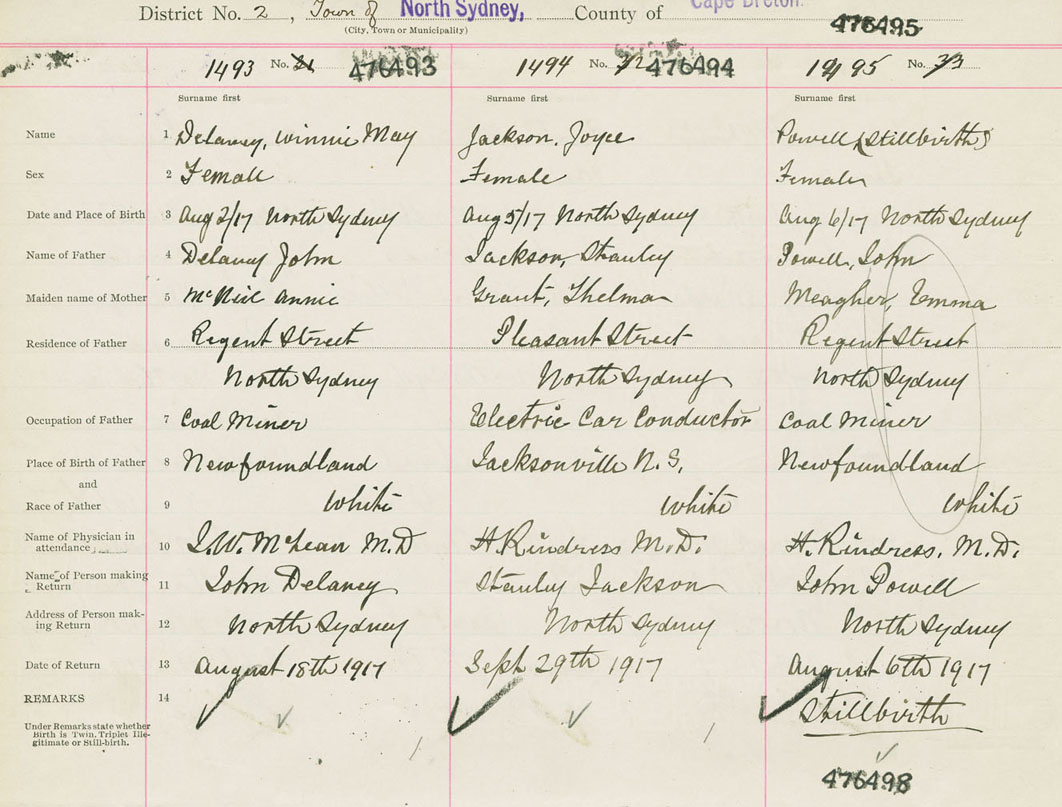 District No. 2, Town of North Sydney, County of Cape Breton.
(City, Town or Municipality)
476495
1493 No. 476493 1494 No. 32 476494 1495 No. 33
Surname first Surname first Surname first
Name 1 Delaney, Winnie May Jackson, Joyce Powell (Stillbirth)
Sex 2 Female Female Female
Date and Place of Birth 3 Aug 2/17 North Sydney Aug 5/17 North Sydney Aug 6/17 North Sydney
Name of Father 4 Delaney John Jackson, Stanley Powell, John
Maiden name of Mother 5 McNeil Annie Grant, Thelma Meagher, Emma
Residence of Father 6 Regent Street Pleasant Street Regent Street
North Sydney North Sydney North Sydney
Occupation of Father 7 Coal Miner Electric Car Conductor Coal Miner
Place of Birth of Father 8 Newfoundland Jacksonville N.S. Newfoundland
and
Race of Father 9 White White White
Name of Physician in attendance 10 McLean M.D H. Rindress M.D. H. Rindress. M.D.
Name of Person making Return 11 John Delaney Stanley Jackson John Powell
Address of Person making Return 12 North Sydney North Sydney North Sydney
Date of Return 13 August 18th 1917 Sept 29th 1917 August 6th 1917
REMARKS 14 Stillbirth
Under Remarks state whether
Birth is Twin, Triplet Ille-
gitimate or Still-birth.
476498